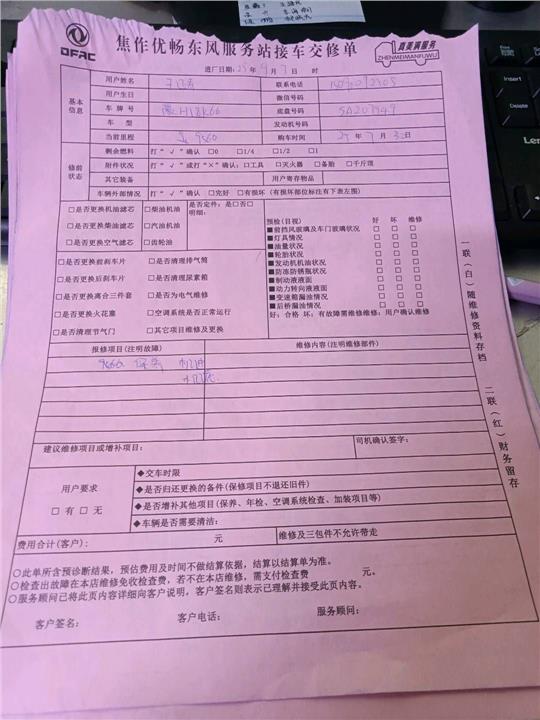 DFAC
焦作优畅东风服务站接车交修单
真美满服务
ZHENMEIMANFUWU
进厂日期: 25年9月9日 时
基本信息
用户姓名
联系电话
用户生日
微信号码
车牌号 H18K66
底盘号码 SA207949
车型
发动机号码
当前里程 9560
购车时间 年 7月 日
修前状态
剩余燃料 打“√”确认 □0 □1/4 □1/2 □1
附件状况 打“√”或打“×”确认:□工具 □灭火器 □备胎 □千斤顶
其它装备
用户寄存物品
车辆外部情况 打“√”确认 □完好 □有损坏(有损坏部位标注有下表左图)
□是否更换机油滤芯 □柴油机油
□是否更换柴油滤芯 □汽油机油
□是否更换空气滤芯 □齿轮油
是否定件: 是□否□
明细:
□是否更换前刹车片 □是否清理排气筒
□是否更换后刹车片 □是否清理尿素箱
□是否更换离合三件套 □是否为电气维修
□是否更换火花塞 □空调系统是否正常运行
□是否清理节气门 □其它项目维修及更换
预检(目视) 好 坏 维修
■前挡风玻璃及车门玻璃状况 □ □ □
■灯具情况 □ □ □
■油量状况 □ □ □
■轮胎状况 □ □ □
■发动机机油状况 □ □ □
■防冻防锈瓶状况 □ □ □
■制动液液面 □ □ □
■动力转向液液面 □ □ □
■变速箱漏油情况 □ □ □
■后桥漏油情况 □ □ □
好:合格 坏:有故障需维修维修:用户确认维修
报修项目(注明故障)
维修内容(注明维修部件)
9560 保养 机油
机滤
建议维修项目或增补项目:
司机确认签字:
用户要求
□有 □无
◆交车时限
◆是否归还更换的备件(保修项目不退还旧件)
◆是否增补其他项目(保养、年检、空调系统检查、加装项目等)
◆车辆是否需要清洁:
费用合计(客户): 元
维修及三包件不允许带走
○此单所含预诊断结果,预估费用及时间不做结算依据,结算以结算单为准。
○检查出故障在本店维修免收检查费,若不在本店维修,需支付检查费 元。
○服务顾问已将此页内容详细向客户说明,客户签名则表示已理解并接受此页内容。
客户签名: 客户电话: 服务顾问:
一联(白)随维修资料存档
二联(红)财务留存
PrtSc
Delete
Lenovo